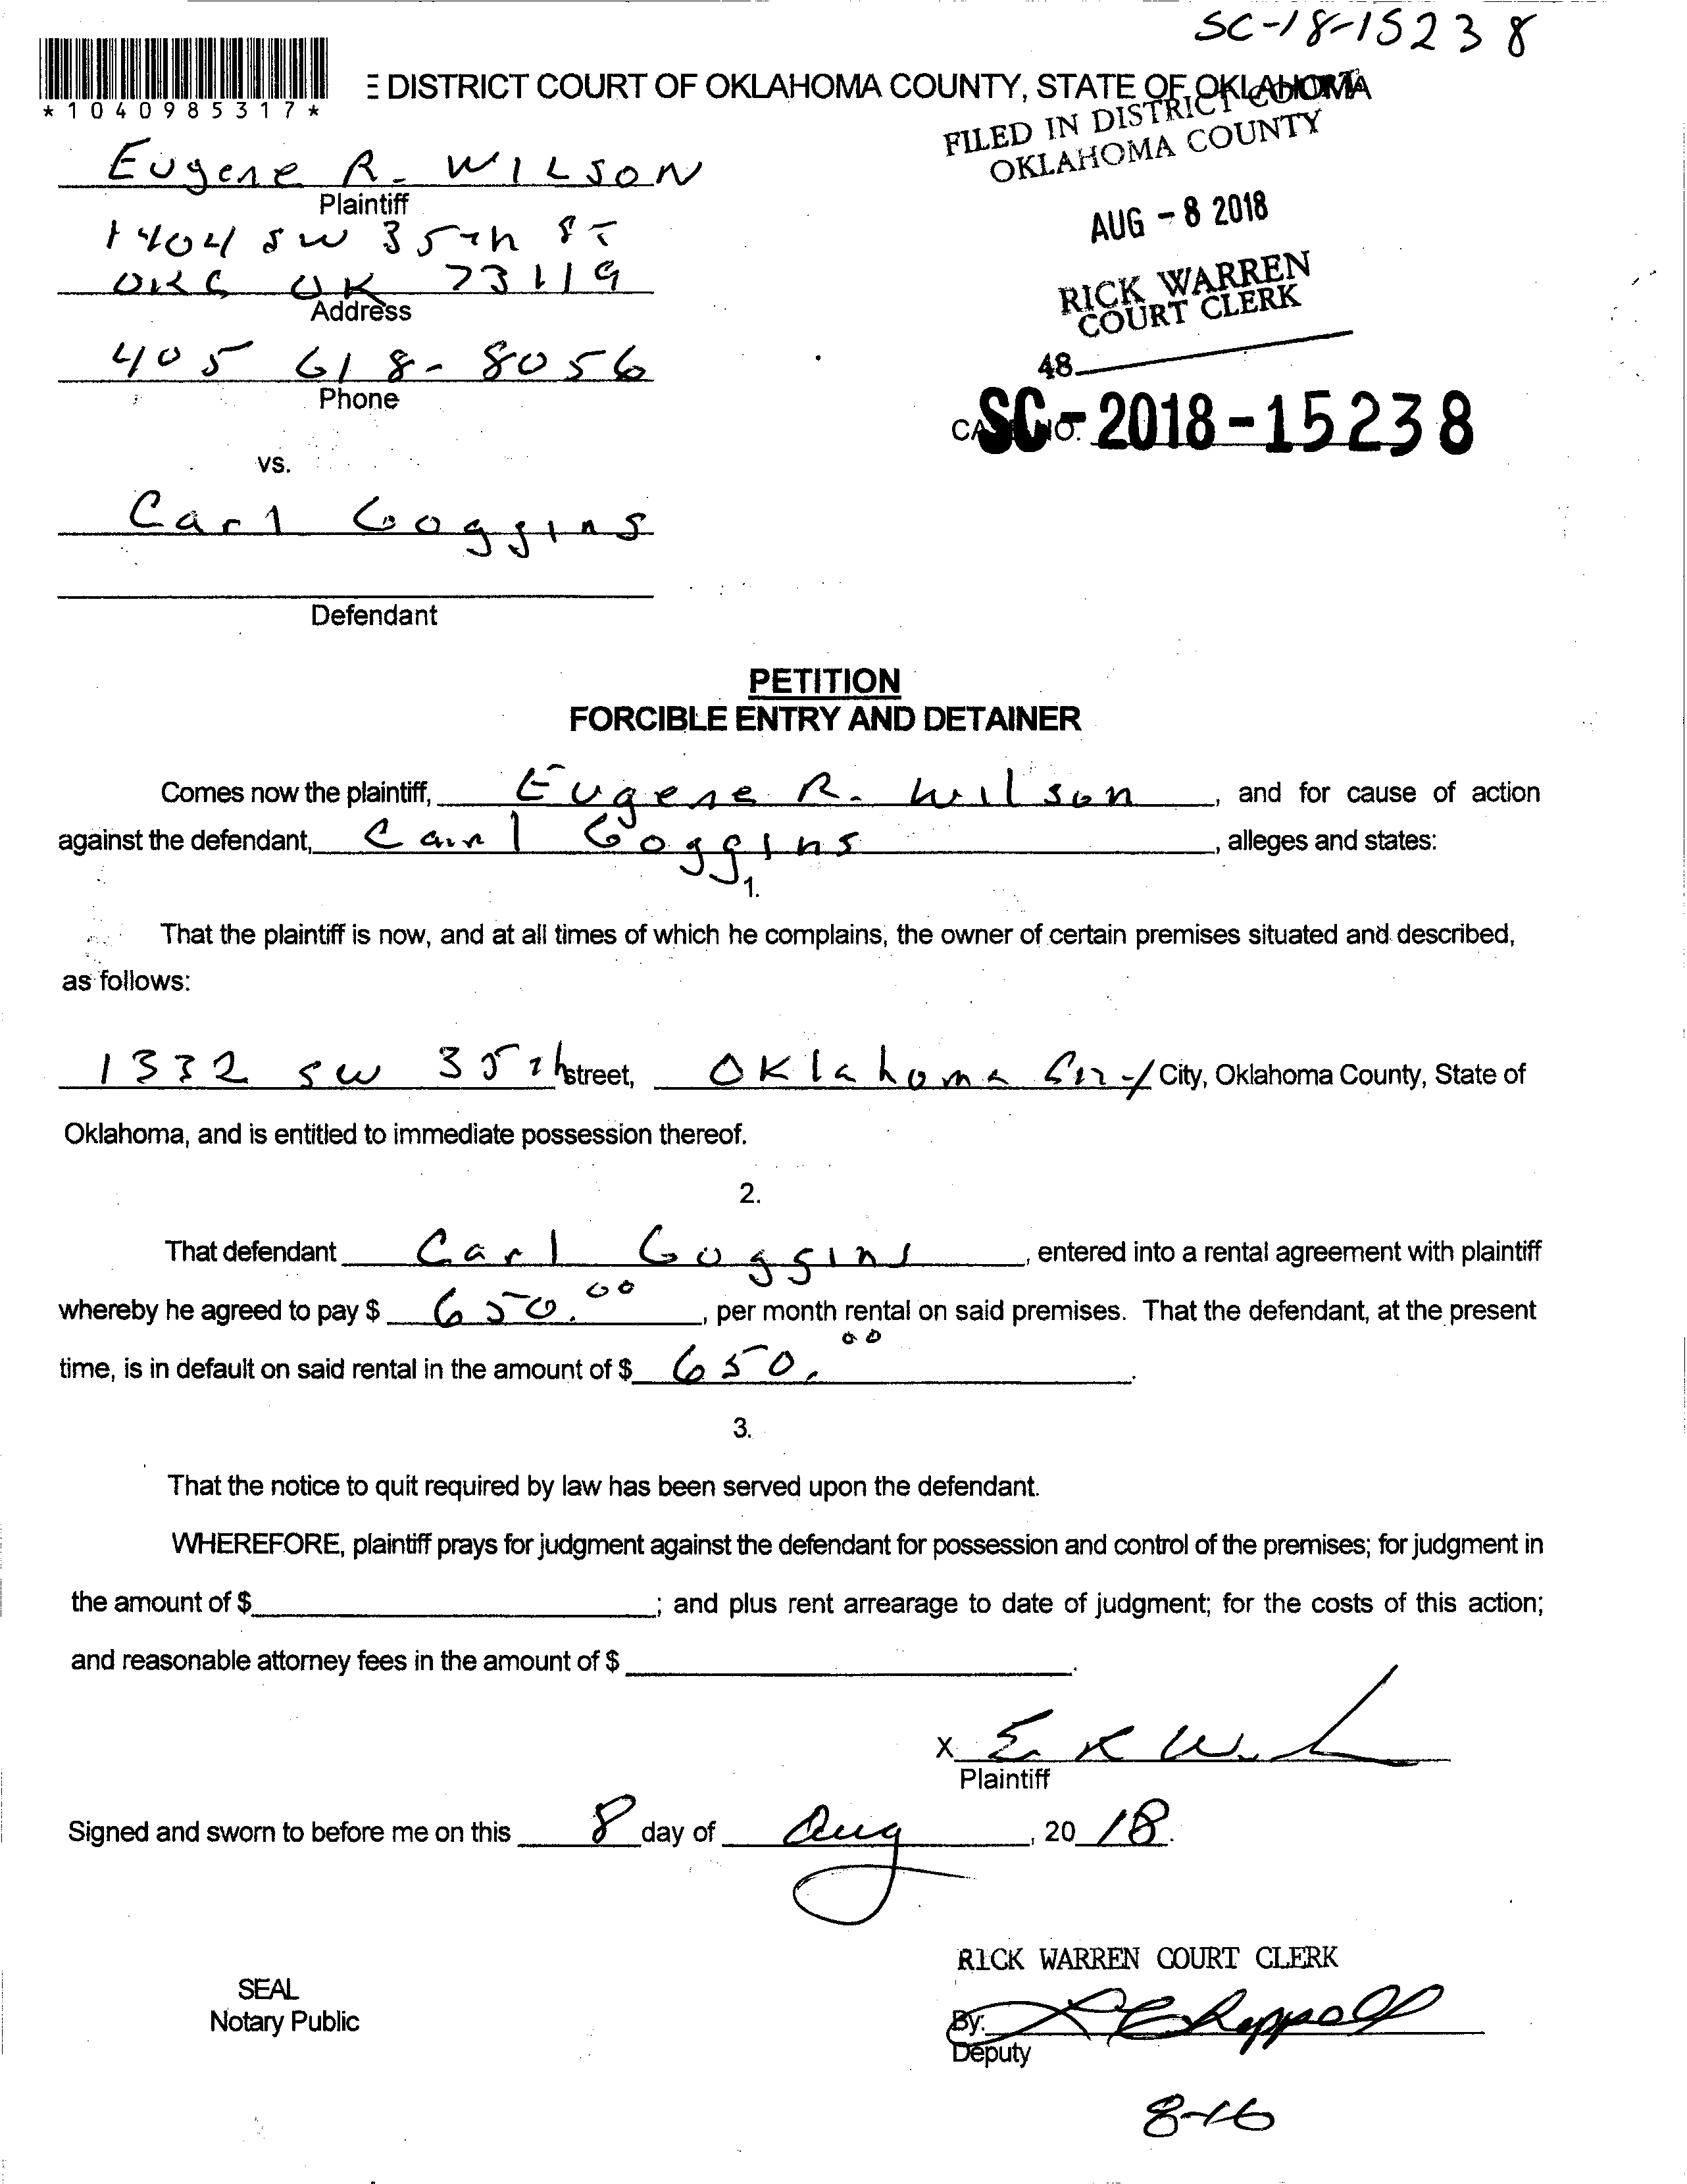 SC-18-15238
*1040985317*
E DISTRICT COURT OF OKLAHOMA COUNTY, STATE OF OKLAHOMA
FILED IN DISTRICT COURT
OKLAHOMA COUNTY
Eugene R. WILSON
Plaintiff
1404 SW 35th ST
AUG - 8 2018
OKC OK 73119
Address
RICK WARREN
COURT CLERK
405 618-8056
Phone
48
CASE NO. SC-2018-15238
vs.
Carl Goggins
Defendant
PETITION
FORCIBLE ENTRY AND DETAINER
Comes now the plaintiff, Eugene R. Wilson, and for cause of action
against the defendant, Carl Goggins, alleges and states:
1.
That the plaintiff is now, and at all times of which he complains, the owner of certain premises situated and described,
as follows:
1332 SW 35th street, Oklahoma City City, Oklahoma County, State of
Oklahoma, and is entitled to immediate possession thereof.
2.
That defendant Carl Goggins, entered into a rental agreement with plaintiff
whereby he agreed to pay $ 650.00, per month rental on said premises. That the defendant, at the present
time, is in default on said rental in the amount of $ 650.00.
3.
That the notice to quit required by law has been served upon the defendant.
WHEREFORE, plaintiff prays for judgment against the defendant for possession and control of the premises; for judgment in
the amount of $ ; and plus rent arrearage to date of judgment; for the costs of this action;
and reasonable attorney fees in the amount of $ .
X E R W
Plaintiff
Signed and sworn to before me on this 8 day of Aug, 20 18.
RICK WARREN COURT CLERK
SEAL
Notary Public
By: Chappell
Deputy
8-16